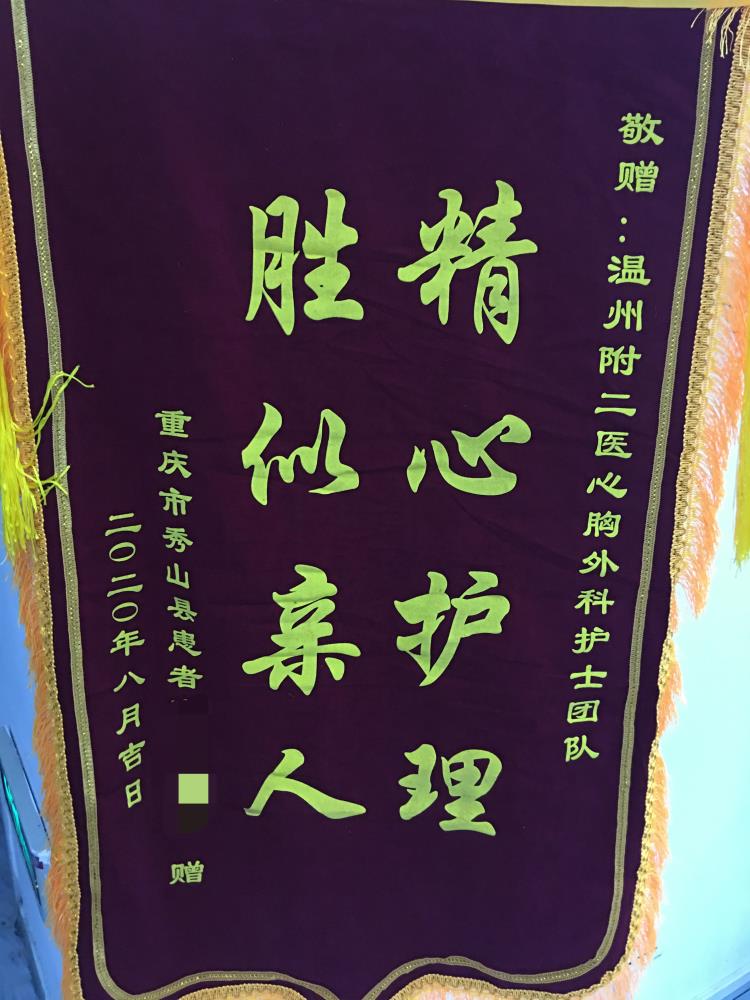 敬赠：温州附二医心胸外科护士团队
精心护理
胜似亲人
重庆市秀山县患者 赠
二〇二〇年八月吉日